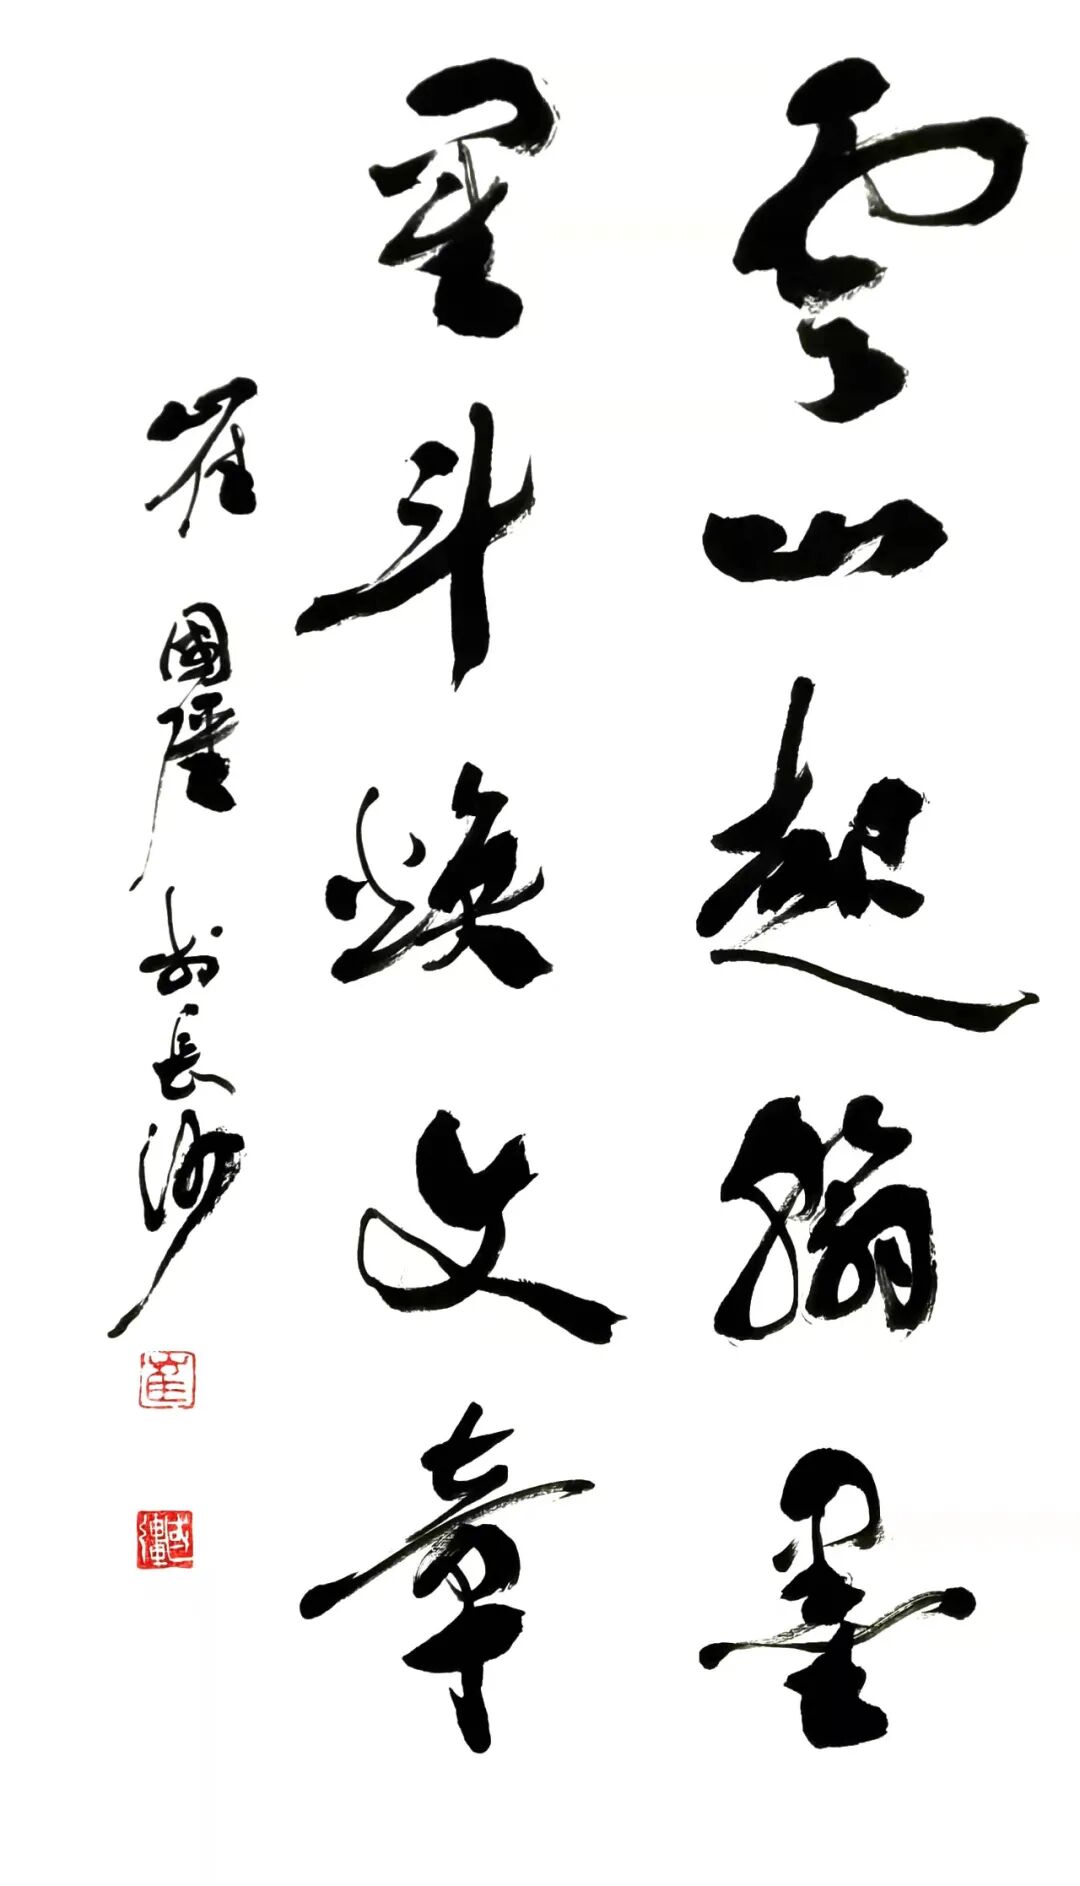 雲山起翰墨
星斗煥文章
崔國 於長沙
崔